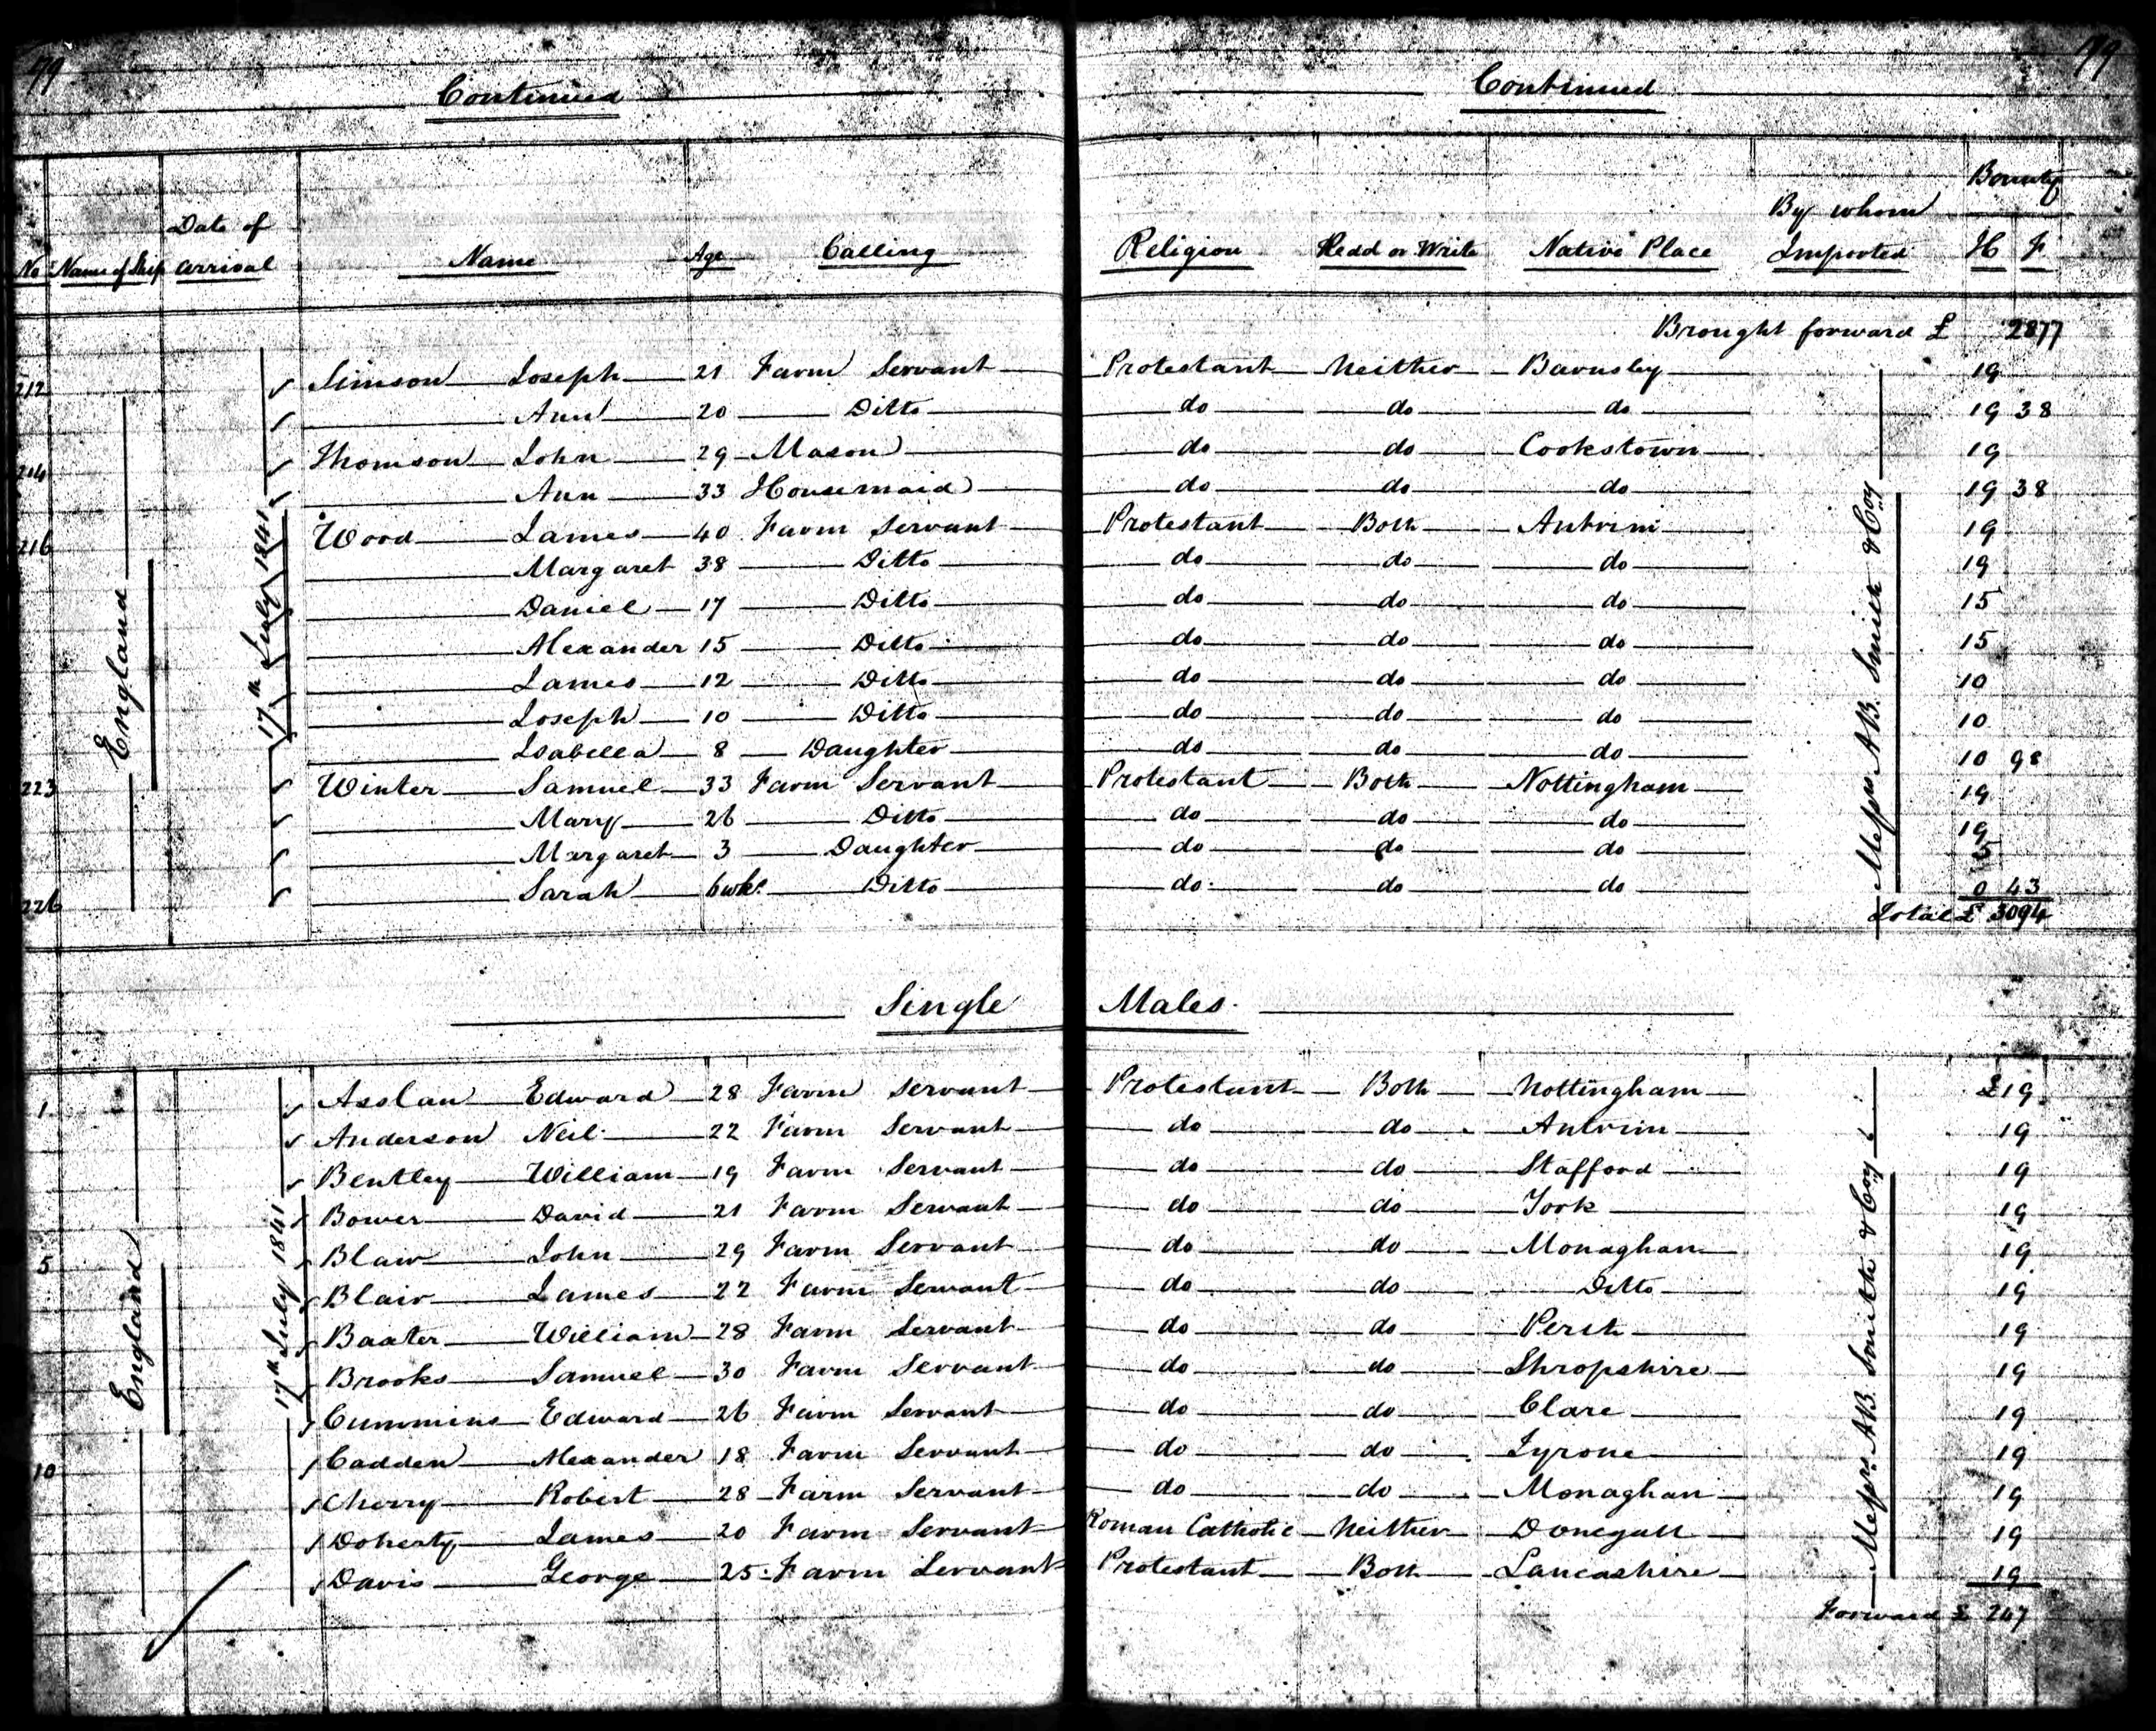 79 Continued Continued 79
No Name of Ship Date of arrival Name Age Calling Religion Read or Write Native Place By whom Imported Bounty H F
Brought forward £ 2877
212 Simson Joseph 21 Farm Servant Protestant Neither Barnsley 19
Ann 20 Ditto do do do 19 38
214 Thomson John 29 Mason do do Cookstown 19
Ann 33 Housemaid do do do 19 38
216 Wood James 40 Farm Servant Protestant Both Antrim 19
Margaret 38 Ditto do do do 19
Daniel 17 Ditto do do do 15
Alexander 15 Ditto do do do 15
James 12 Ditto do do do 10
Joseph 10 Ditto do do do 10
Isabella 8 Daughter do do do 10 98
223 Winter Samuel 33 Farm Servant Protestant Both Nottingham 19
Mary 26 Ditto do do do 19
Margaret 3 Daughter do do do 5
226 Sarah 6 wks. Ditto do do do 0 43
England 17th July 1841 Messrs A.B. Smith & Coy
Total £ 3094
Single Males
1 Asslan Edward 28 Farm Servant Protestant Both Nottingham £19
Anderson Neil 22 Farm Servant do do Antrim 19
Bentley William 19 Farm Servant do do Stafford 19
Bower David 21 Farm Servant do do York 19
5 Blair John 29 Farm Servant do do Monaghan 19
Blair James 22 Farm Servant do do Ditto 19
Baxter William 28 Farm Servant do do Perth 19
Brooks Samuel 30 Farm Servant do do Shropshire 19
Cummins Edward 26 Farm Servant do do Clare 19
10 Cadden Alexander 18 Farm Servant do do Tyrone 19
Cherry Robert 28 Farm Servant do do Monaghan 19
Doherty James 20 Farm Servant Roman Catholic Neither Donegall 19
Davis George 25 Farm Servant Protestant Both Lancashire 19
England 17th July 1841 Messrs A.B. Smith & Coy
Forward £ 247